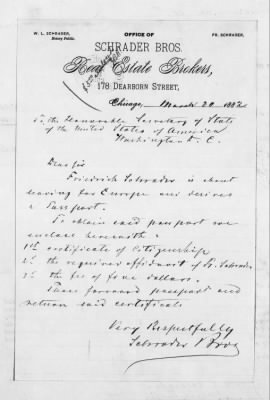 W. L. SCHRADER,
Notary Public.
OFFICE OF
FR. SCHRADER,
SCHRADER BROS.
Real Estate Brokers,
178 DEARBORN STREET,
Chicago, March 20 1882
To the Honorable Secretary of State
of the United States of America
Washington C.
Dear Sir
Friedrich Schrader is about
leaving for Europe and desires
a Passport.
To obtain said passport we
enclose herewith
1st certificate of Citizenship
2d the required affidavit of Fr. Schrader
3d the fee of five dollars.
Please forward passport and
return said certificate
Very Respectfully
Schrader Bros